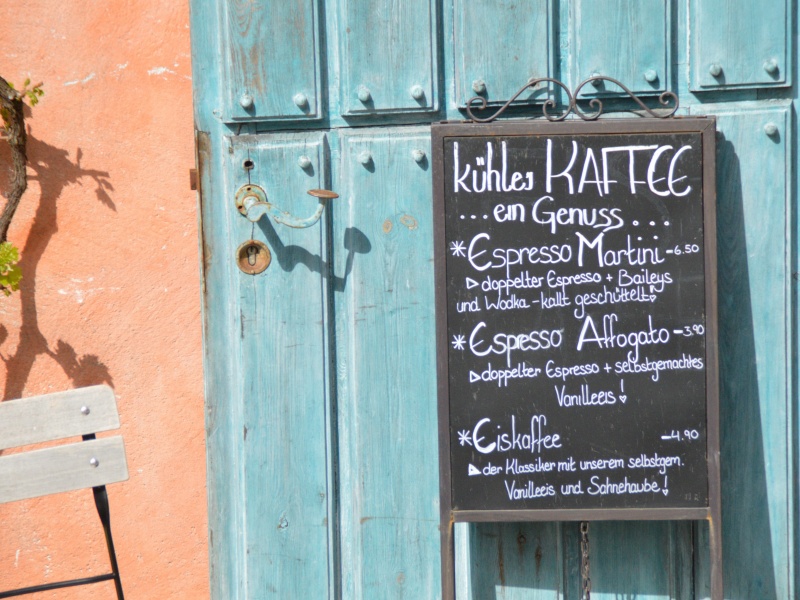 kühles KAFFEE
...ein Genuss...
*Espresso Martini -6.50
▷ doppelter Espresso + Baileys
und Wodka - kallt geschüttelt!
*Espresso Affogato -3.90
▷ doppelter Espresso + selbstgemachtes
Vanilleeis!
*Eiskaffee -4.90
▷ der Klassiker mit unserem selbstgem.
Vanilleeis und Sahnehaube!